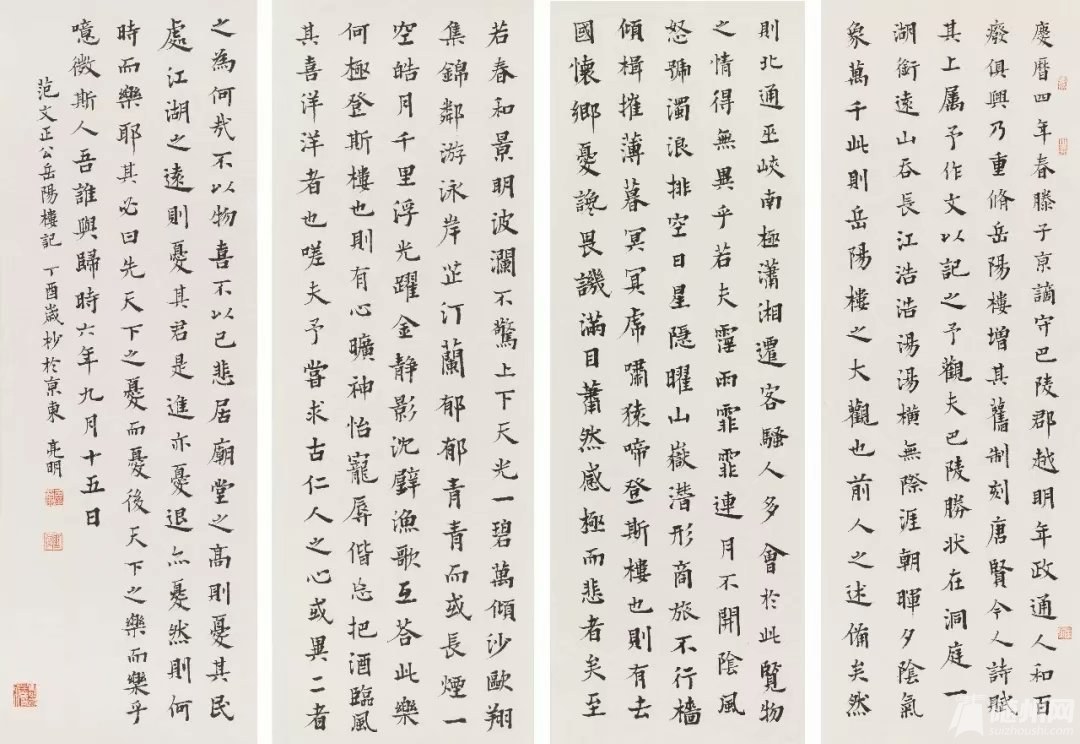 慶曆四年春滕子京謫守巴陵郡越明年政通人和百
廢俱興乃重脩岳陽樓增其舊制刻唐賢今人詩賦
其上属予作文以記之予觀夫巴陵勝狀在洞庭一
湖銜遠山吞長江浩浩湯湯橫無際涯朝暉夕陰氣
象萬千此則岳陽樓之大觀也前人之述備矣然
則北通巫峽南極瀟湘遷客騷人多會於此覽物
之情得無異乎若夫霪雨霏霏連月不開陰風
怒號濁浪排空日星隱曜山嶽潛形商旅不行檣
傾楫摧薄暮冥冥虎嘯猿啼登斯樓也則有去
國懷鄉憂讒畏譏滿目蕭然感極而悲者矣至
若春和景明波瀾不驚上下天光一碧萬傾沙鷗翔
集錦鄰游泳岸芷汀蘭郁郁青青而或長煙一
空皓月千里浮光躍金静影沈璧漁歌互荅此樂
何極登斯樓也則有心曠神怡寵辱偕忘把酒臨風
其喜洋洋者也嗟夫予嘗求古仁人之心或異二者
之為何哉不以物喜不以己悲居廟堂之高則憂其民
處江湖之遠則憂其君是進亦憂退亦憂然則何
時而樂耶其必曰先天下之憂而憂後天下之樂而樂乎
噫微斯人吾誰與歸時六年九月十五日
范文正公岳陽樓記 丁酉歲杪於京東 亮明
随州网
suizhoushi.com